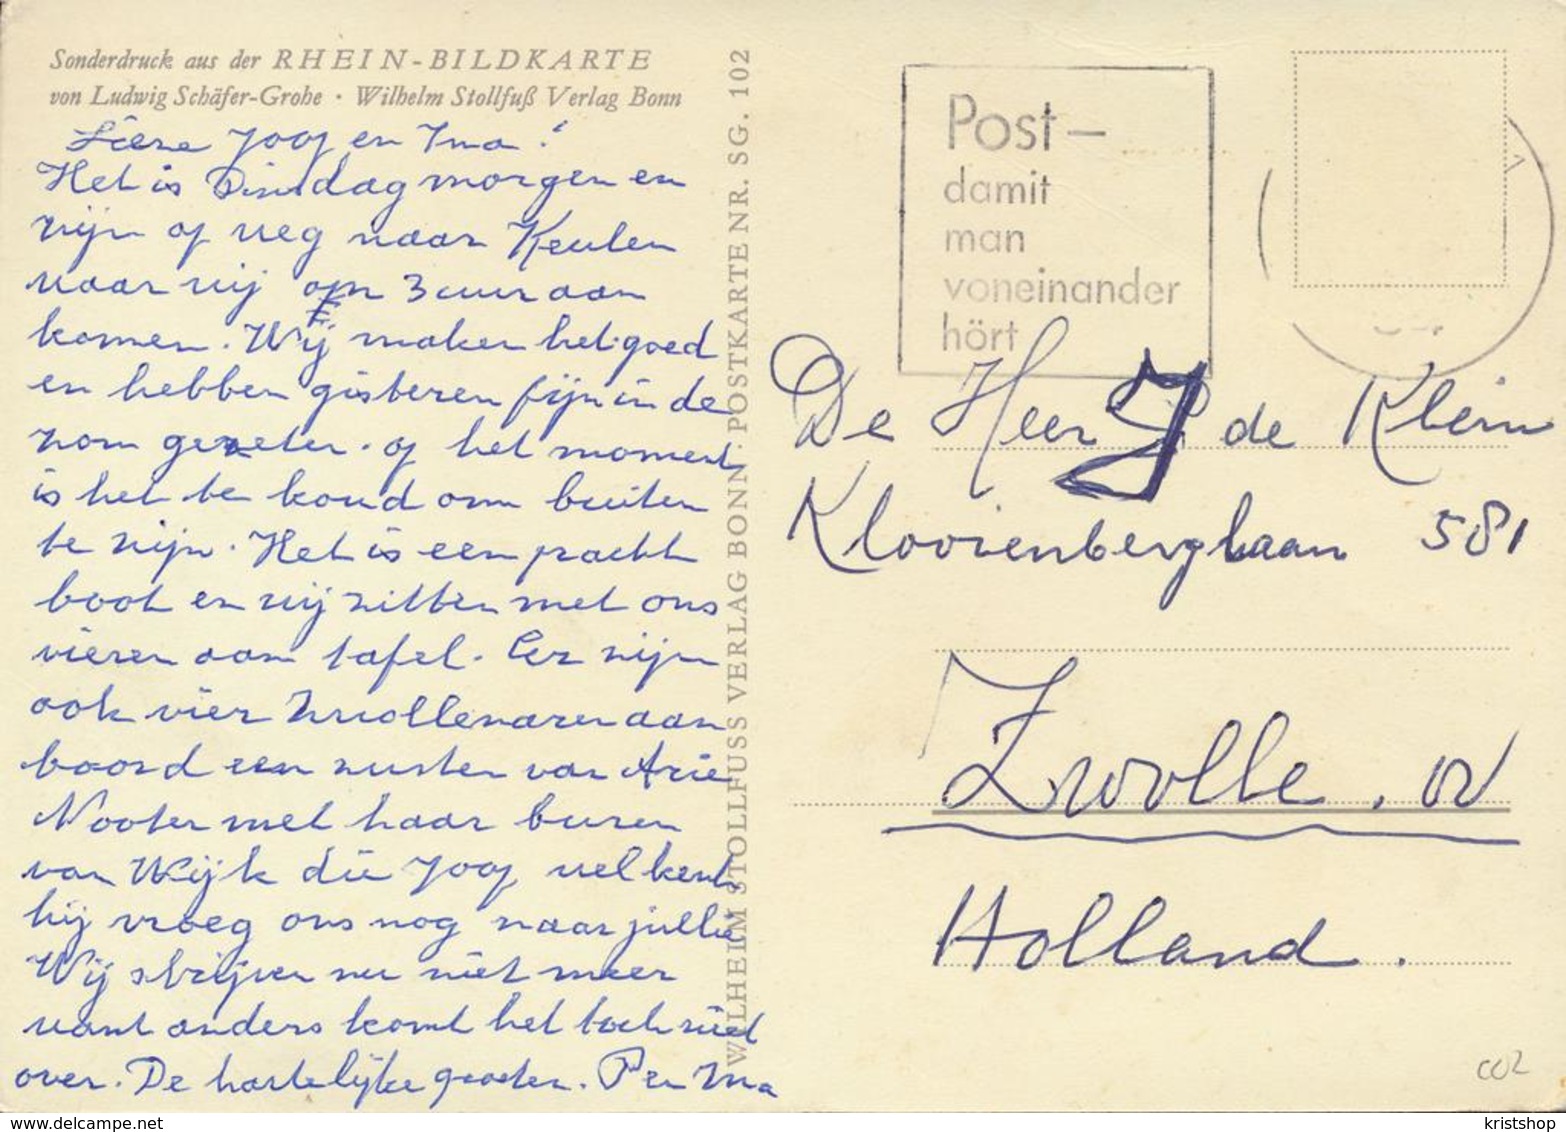 Sonderdruck aus der RHEIN-BILDKARTE
von Ludwig Schäfer-Grohe · Wilhelm Stollfuß Verlag Bonn
Lieve Joop en Ina!
Het is Dinsdag morgen en
zijn op weg naar Keulen
waar wij om 3 uur aan
komen. Wij maken het goed
en hebben gisteren fijn in de
zon gezeten. op het moment
is het te koud om buiten
te zijn. Het is een pracht
boot en wij zitten met ons
vieren aan tafel. Er zijn
ook vier Zwollenaren aan
boord een zuster van Arie
Nooter met haar buren
van Wijk die Joop wel kent
hij vroeg ons nog naar jullie
Wij schrijven nu niet meer
want anders komt het toch niet
over. De hartelijke groeten. Pa en Ma
WILHELM STOLLFUSS VERLAG BONN. POSTKARTE NR. SG. 102
Post-
damit
man
voneinander
hört
De Heer J de Klein
Klooienberglaan 581
Zwolle. OV
Holland.
002
delcampe.net
kristshop